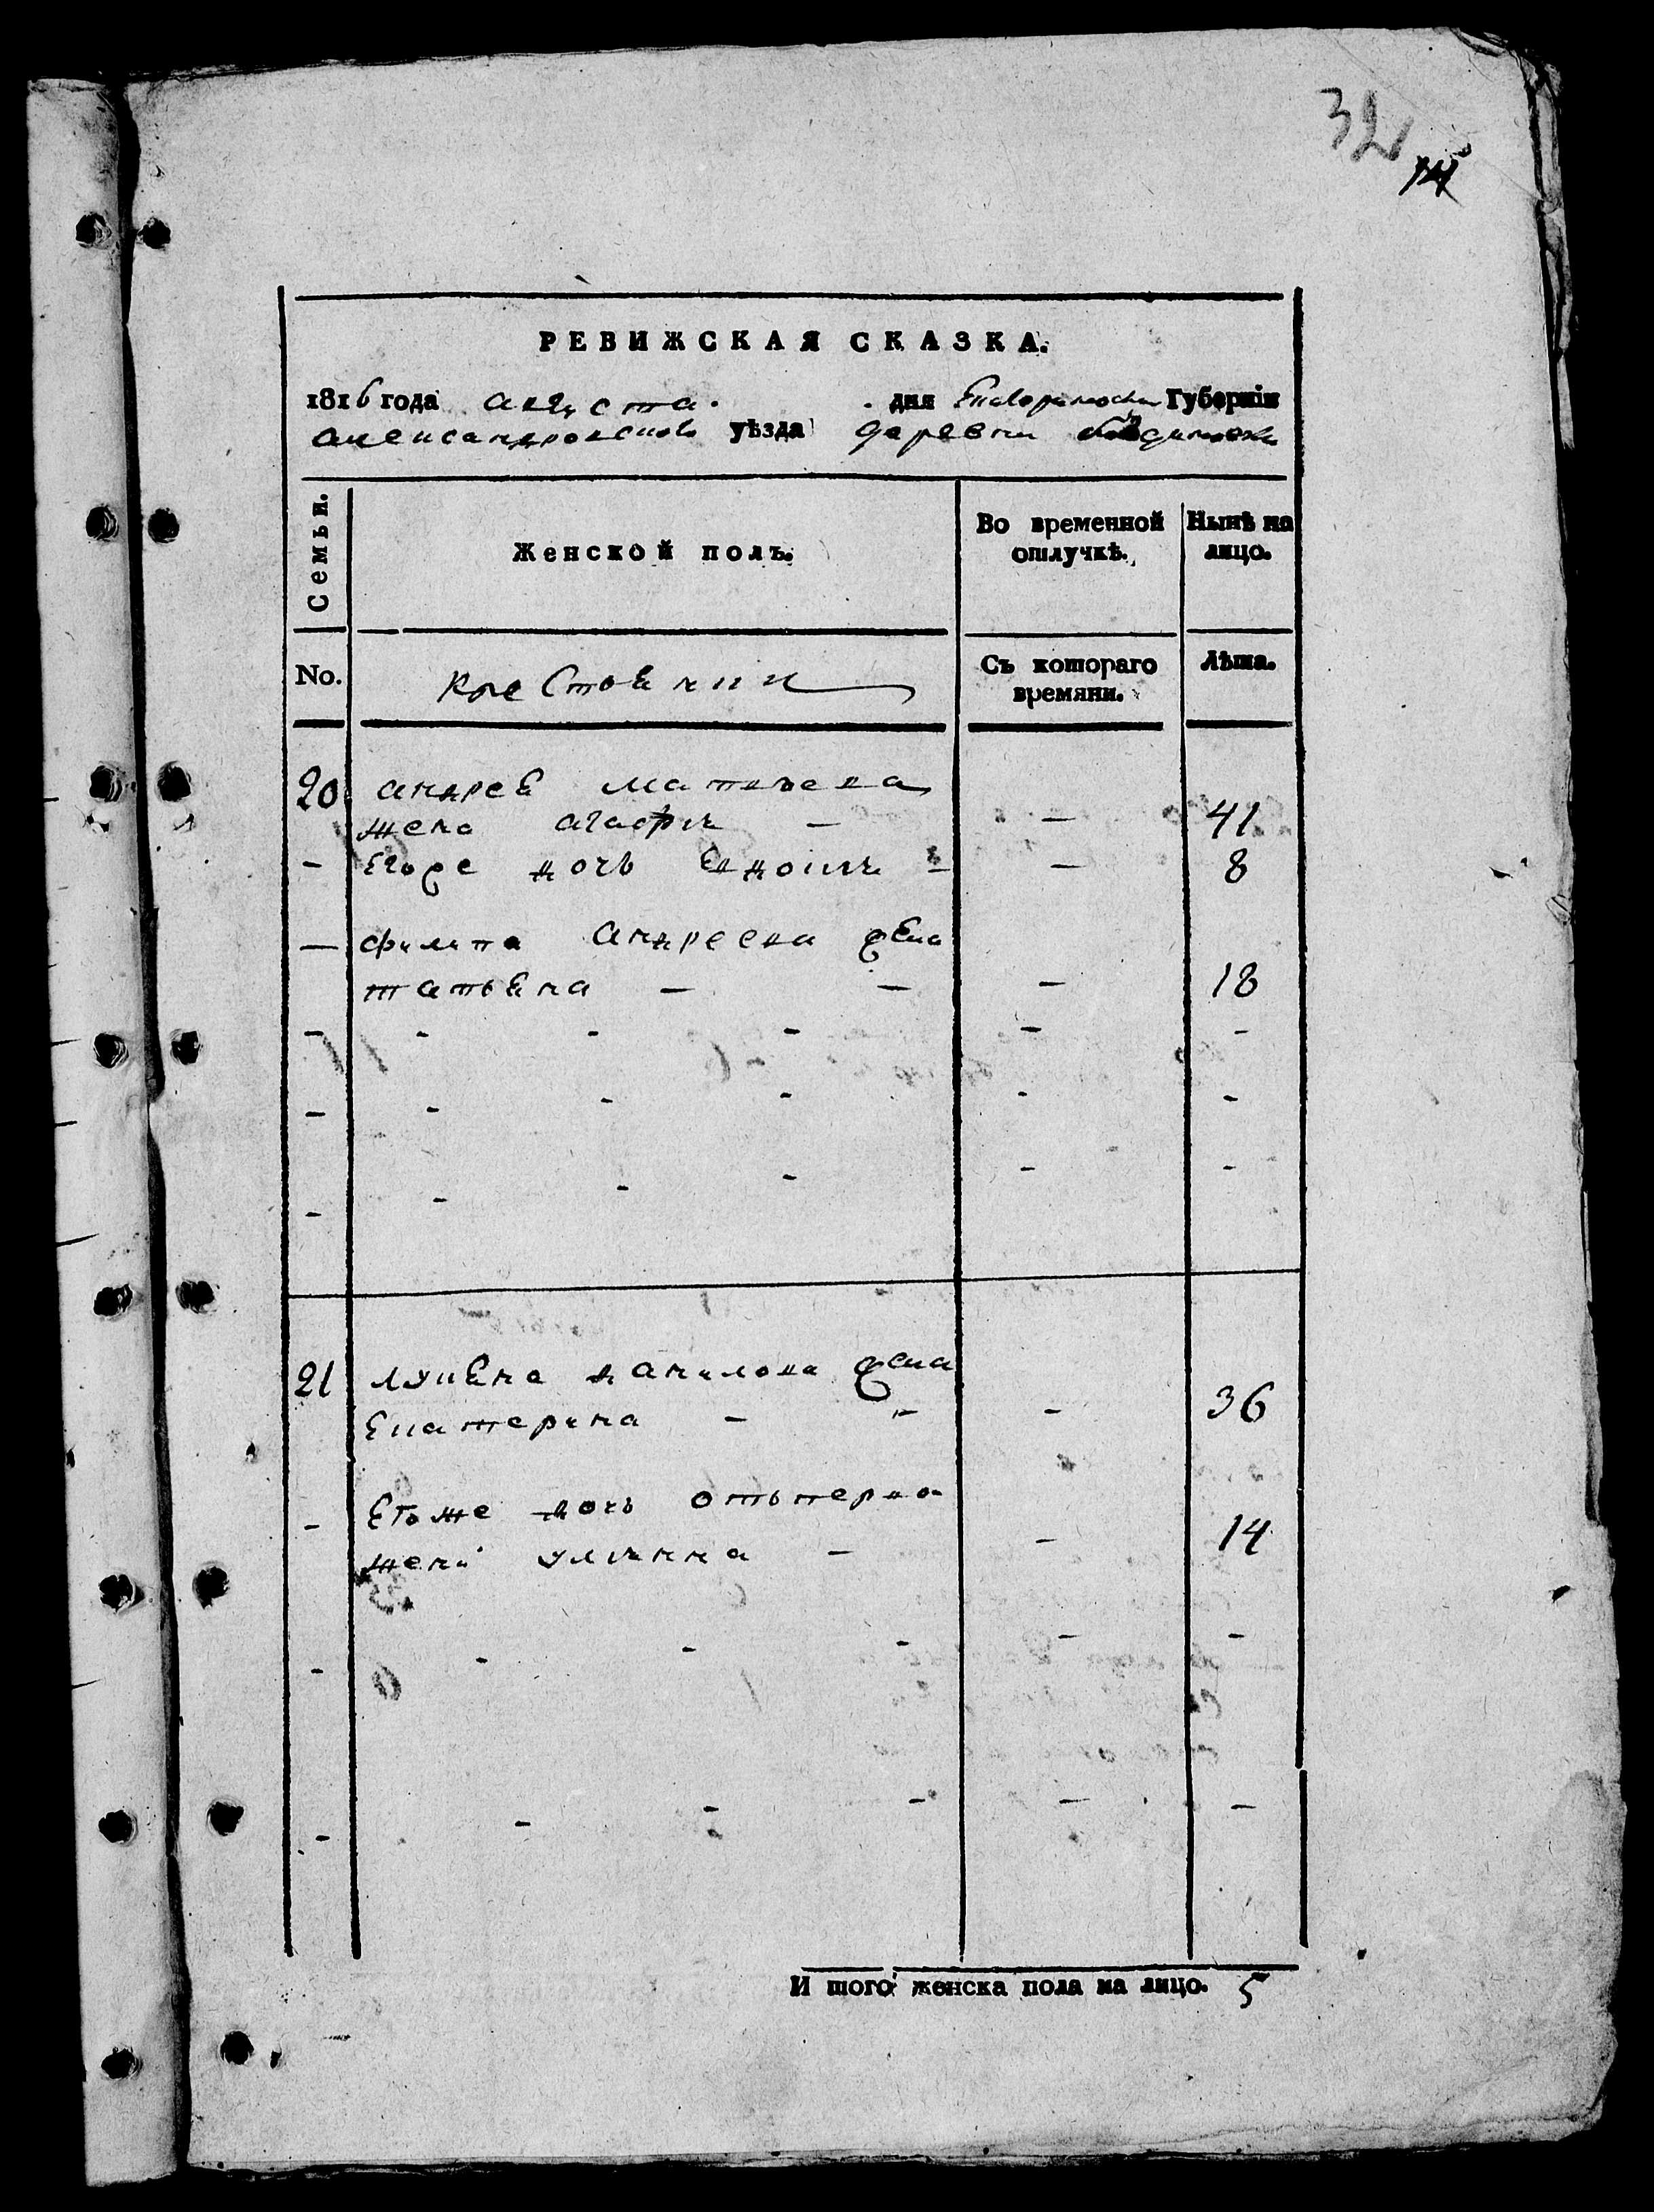 32
РЕВИЖСКАЯ СКАЗКА.
1816 года августа. дня Губерніи
александровского уѣзда деревни
Семьи. Женской полъ. Во временной отлучкѣ. Нынѣ на лицо.
No. крестьянии Съ котораго времяни. Лѣта.
20 андрея матвеева
жена агафия — — 41
— Егоже дочь Евдокия — — 8
— филипа андреева жена
татьяна — — — 18
- - - - - -
- - - - - -
- - - - - -
21 лукьяна данилова жена
Екатерина - - - 36
- Егоже дочь отъперво
жени ульянна - - 14
- - - - - -
- - - - - -
И того женска пола на лицо. 5